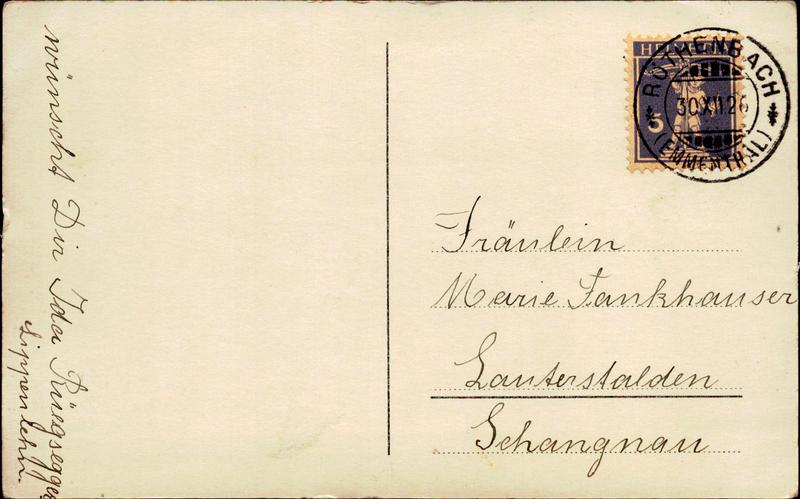 wünscht Dir Ida Rüegsegger
Lippenlehn
HELVETIA
5
RÖTHENBACH
30.XII.26
(EMMENTHAL)
Fräulein
Marie Fankhauser
Lauterstalden
Schangnau